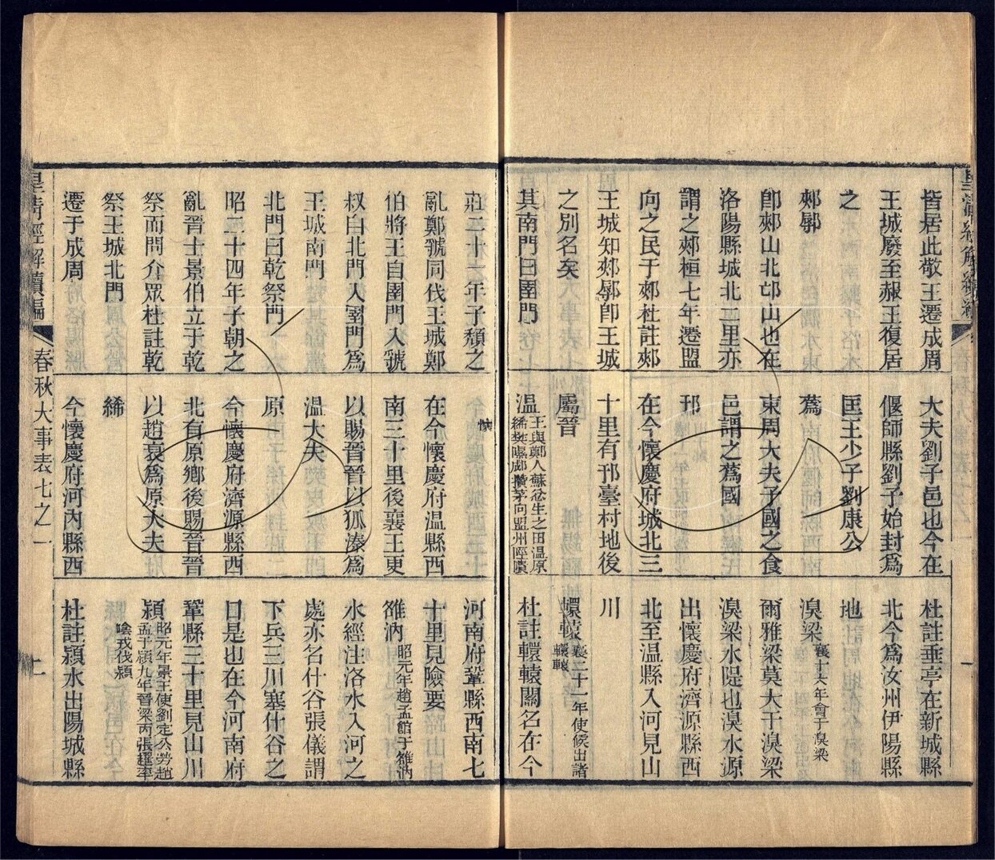 皆居此敬王遷成周
王城廢至赧王復居
之
郟鄏
卽郟山北邙山也在
洛陽縣城北二里亦
謂之郟桓七年遷盟
向之民于郟杜註郟
王城知郟鄏卽王城
之別名矣
其南門曰圉門
大夫劉子邑也今在
偃師縣劉子始封爲
匡王少子劉康公
蔿
東周大夫子國之食
邑謂之蔿國
邘
在今懷慶府城北三
十里有邘臺村地後
屬晉
溫王與鄭人蘇忿生之田溫原
絺樊隰郕攢茅向盟州陘隤
杜註垂亭在新城縣
北今爲汝州伊陽縣
地
湨梁襄十六年會于湨梁
爾雅梁莫大于湨梁
湨梁水隄也湨水源
出懷慶府濟源縣西
北至温縣入河見山
川
轘轅襄二十一年使候出諸
轘轅
杜註轘轅關名在今
莊二十一年子頽之
亂鄭虢同伐王城鄭
伯將王自圉門入虢
叔自北門入圉門爲
王城南門
北門曰乾祭門
昭二十四年子朝之
亂晉士景伯立于乾
祭而問介眾杜註乾
祭王城北門
遷于成周
懷
在今懷慶府温縣西
南三十里後襄王更
以賜晉晉以狐溱爲
温大夫
原
今懷慶府濟源縣西
北有原鄉後賜晉晉
以趙衰爲原大夫
絺
今懷慶府河内縣西
河南府鞏縣西南七
十里見險要
雒汭昭元年趙孟館于雒汭
水經注洛水入河之
處亦名什谷張儀謂
下兵三川塞什谷之
口是也在今河南府
鞏縣三十里見山川
潁昭元年景王使劉定公勞趙
孟于潁九年晉梁丙張趯率
陰戎伐潁
杜註潁水出陽城縣
皇清經解續編
春秋大事表七之一